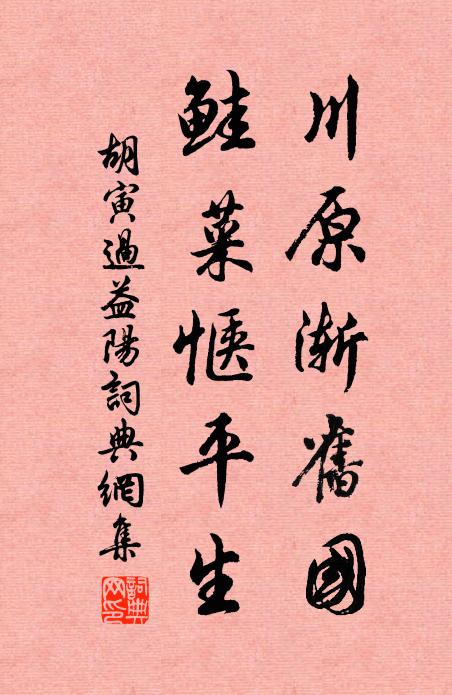 川原漸舊國
鮭菜愜平生
胡寅過益陽詞典網集
詞典网印